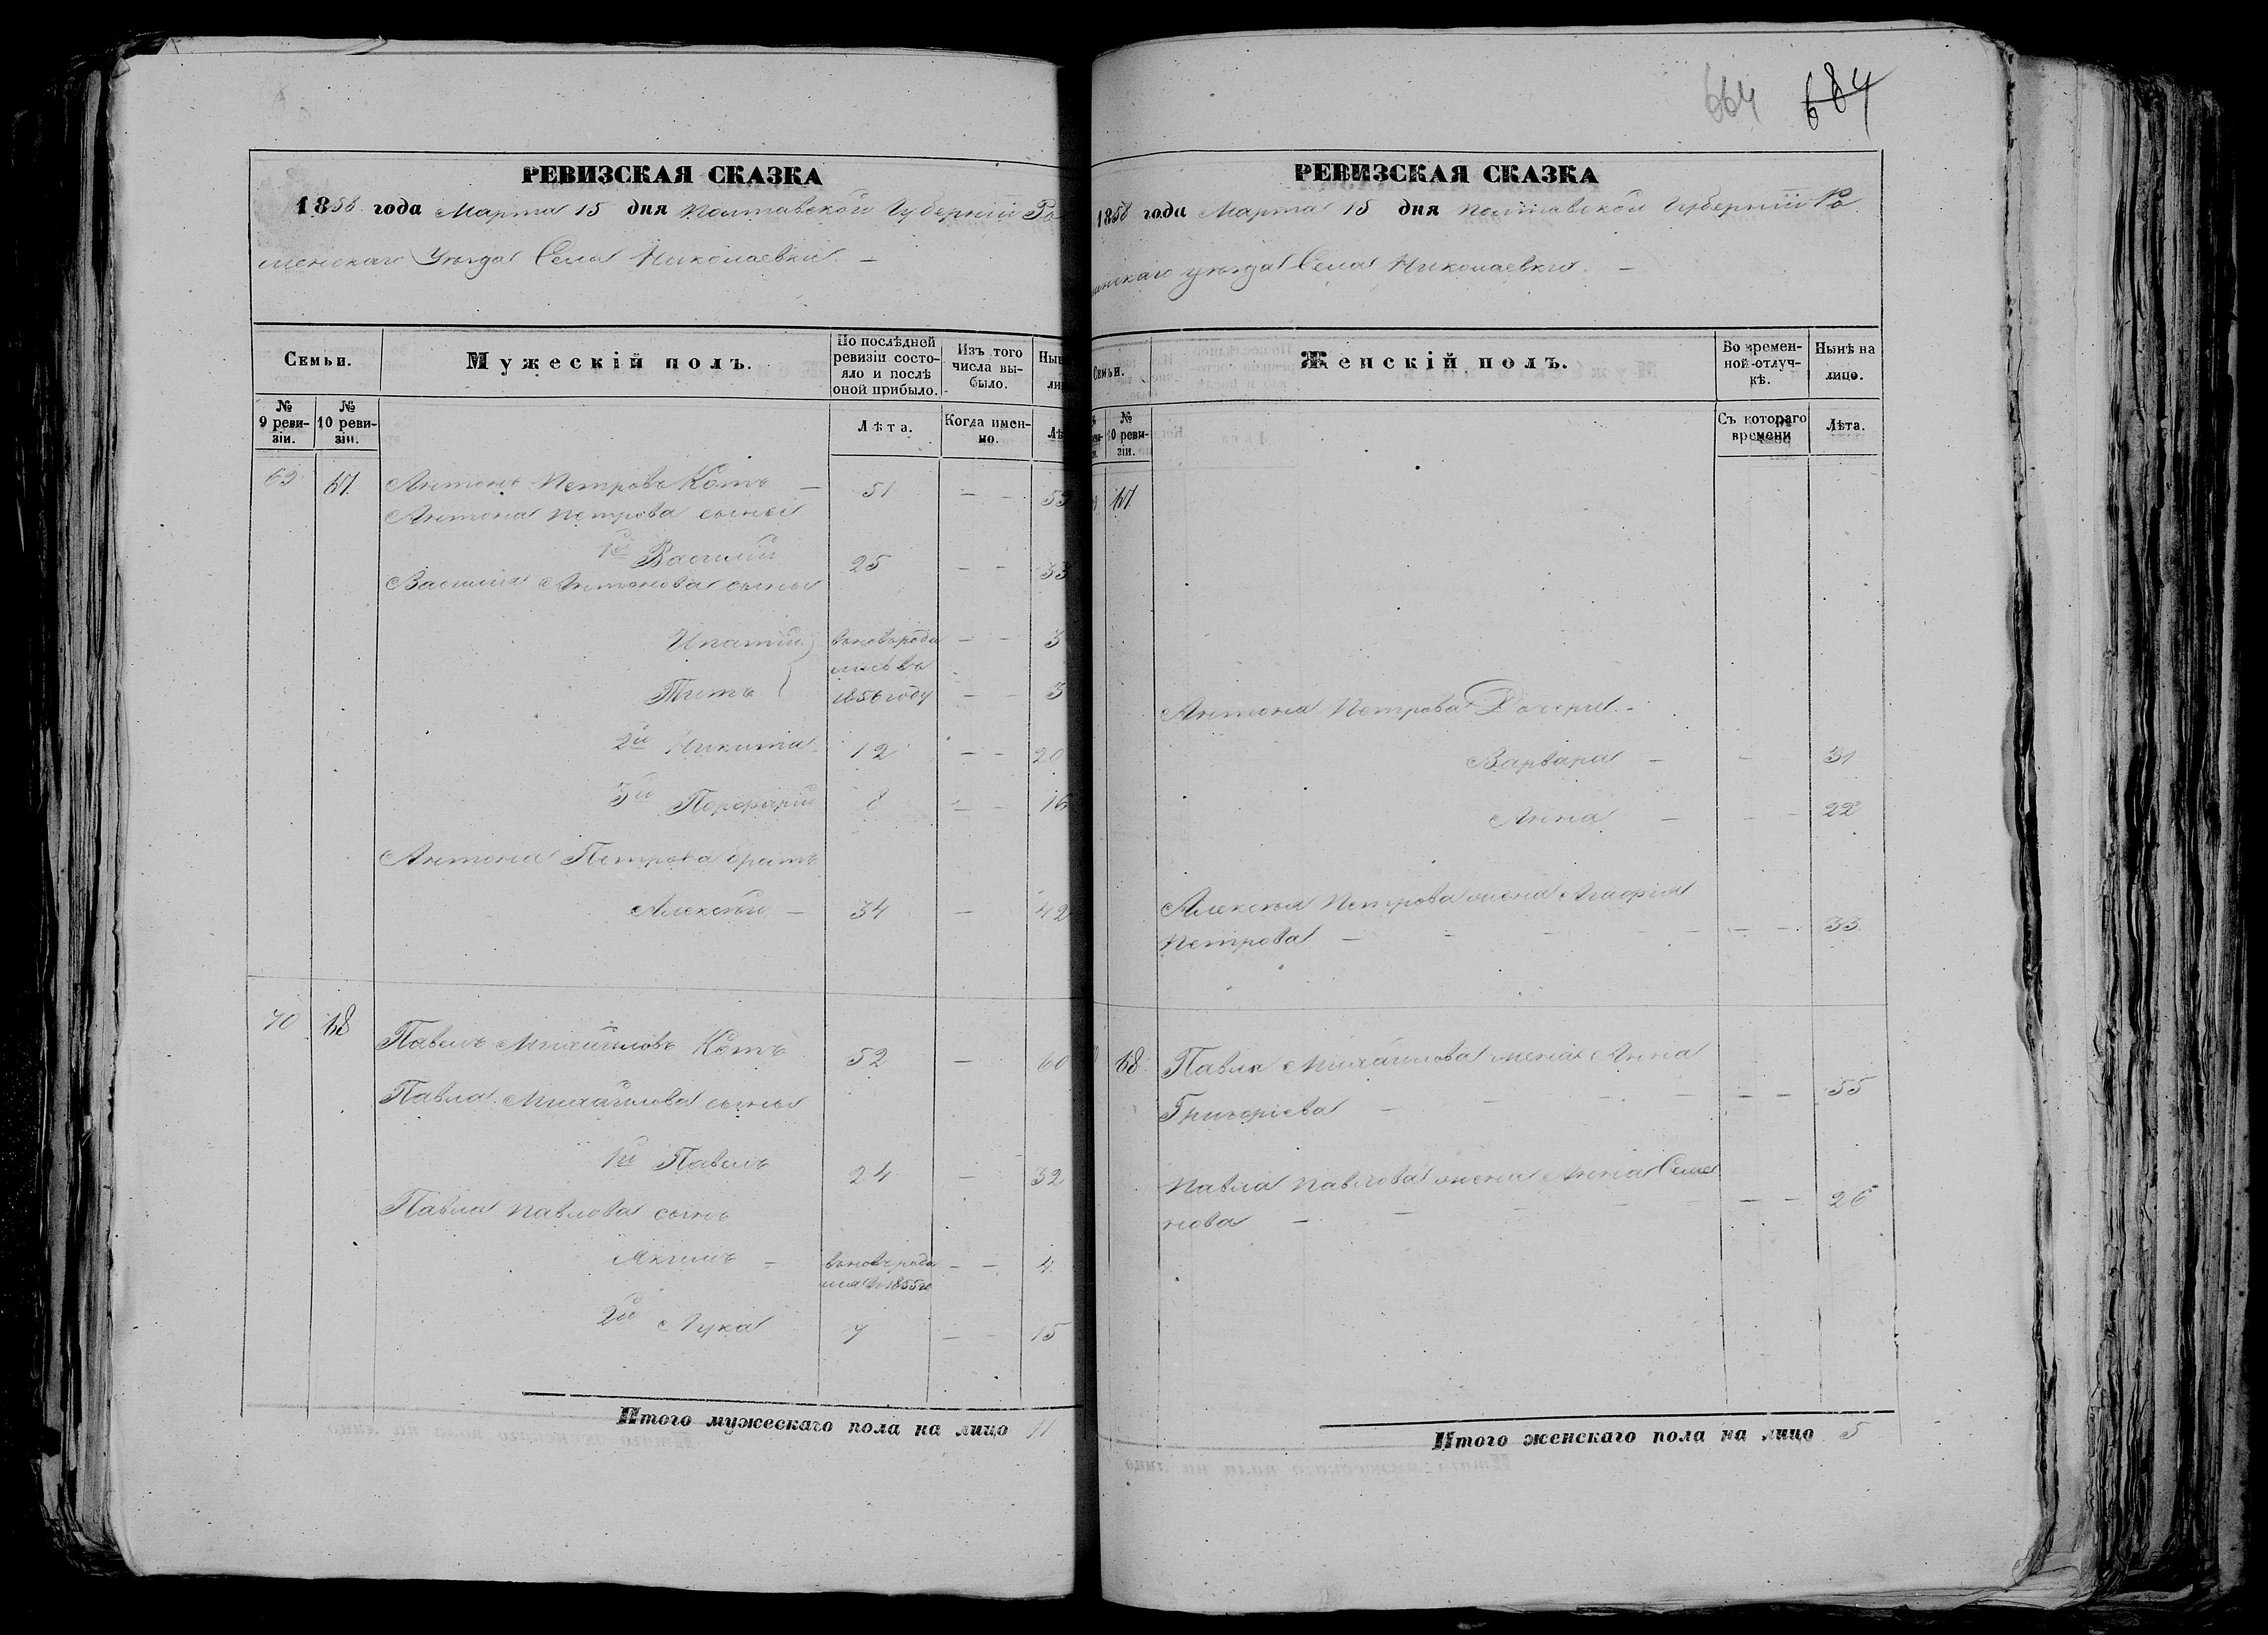 РЕВИЗСКАЯ СКАЗКА
1858 года Марта 15 дня Полтавской Губерніи Ро
менскаго Уѣзда Села Николаевки. —
Семьи.
Мужескій полъ.
По послѣдней ревизіи состояло и послѣ оной прибыло.
Изъ того числа выбыло.
№ 9 ревизіи.
№ 10 ревизіи.
Лѣта.
Когда именно.
67 Антонъ Петровъ Котъ — 51 — —
Антона Петрова сыны
1й Василій 25 — — 33
Василія Антонова сыны
Ипатій вновь роди — — 3
лись въ
Титъ 1856 году — — 3
2й Никита 12 — — 20
3й Порфирій 8 — — 16
Антона Петрова братъ
Алексѣй — 34 — 42
70 68 Павелъ Михайловъ Котъ 52 — 60
Павла Михайлова сыны
1й Павелъ 24 — 32
Павла Павлова сынъ
Акимъ — вновь роди — — 4
лся въ 1855 го
2й Лука 7 — — 15
Итого мужескаго пола на лицо 11
664 684
РЕВИЗСКАЯ СКАЗКА
1858 года Марта 15 дня Полтавской Губерніи Ро
менскаго уѣзда Села Николаевки. —
Семьи.
Женскій полъ.
Во временной отлучкѣ.
Нынѣ на лицо.
№ 10 ревизіи.
Съ котораго времени
Лѣта.
67
Антона Петрова Дочери. -
Варвара — - 31
Анна — - - 22
Алексѣя Петрова жена Агафія
Петрова — - - - - — - 33
68 Павла Михайлова жена Анна
Григоріева — - - - - — - 55
Павла Павлова жена Анна Семе
нова — - - - - — - 26
Итого женскаго пола на лицо 5